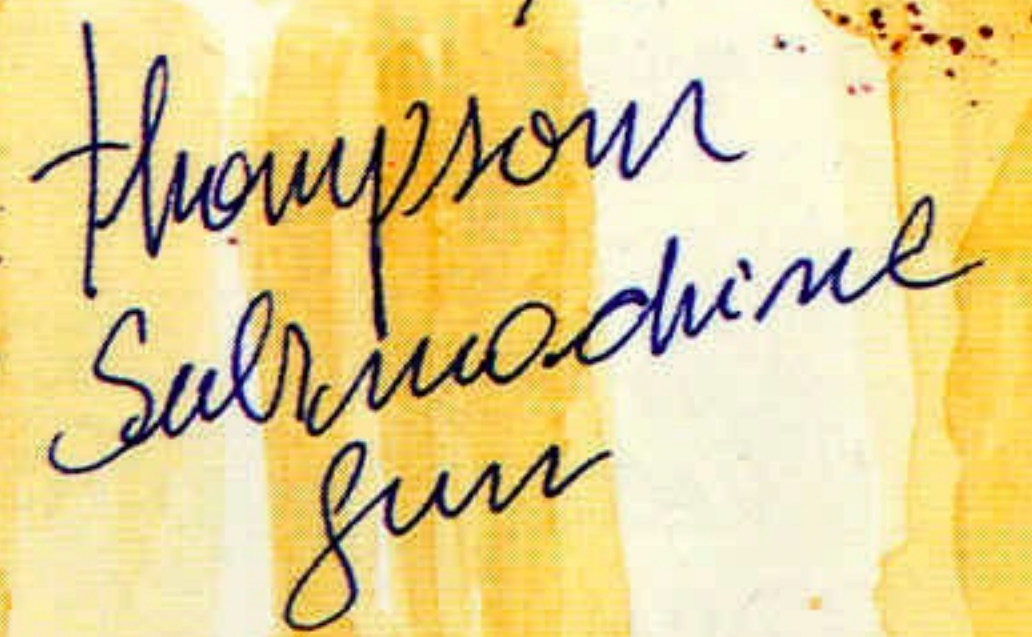 thompson
Submachine
gun